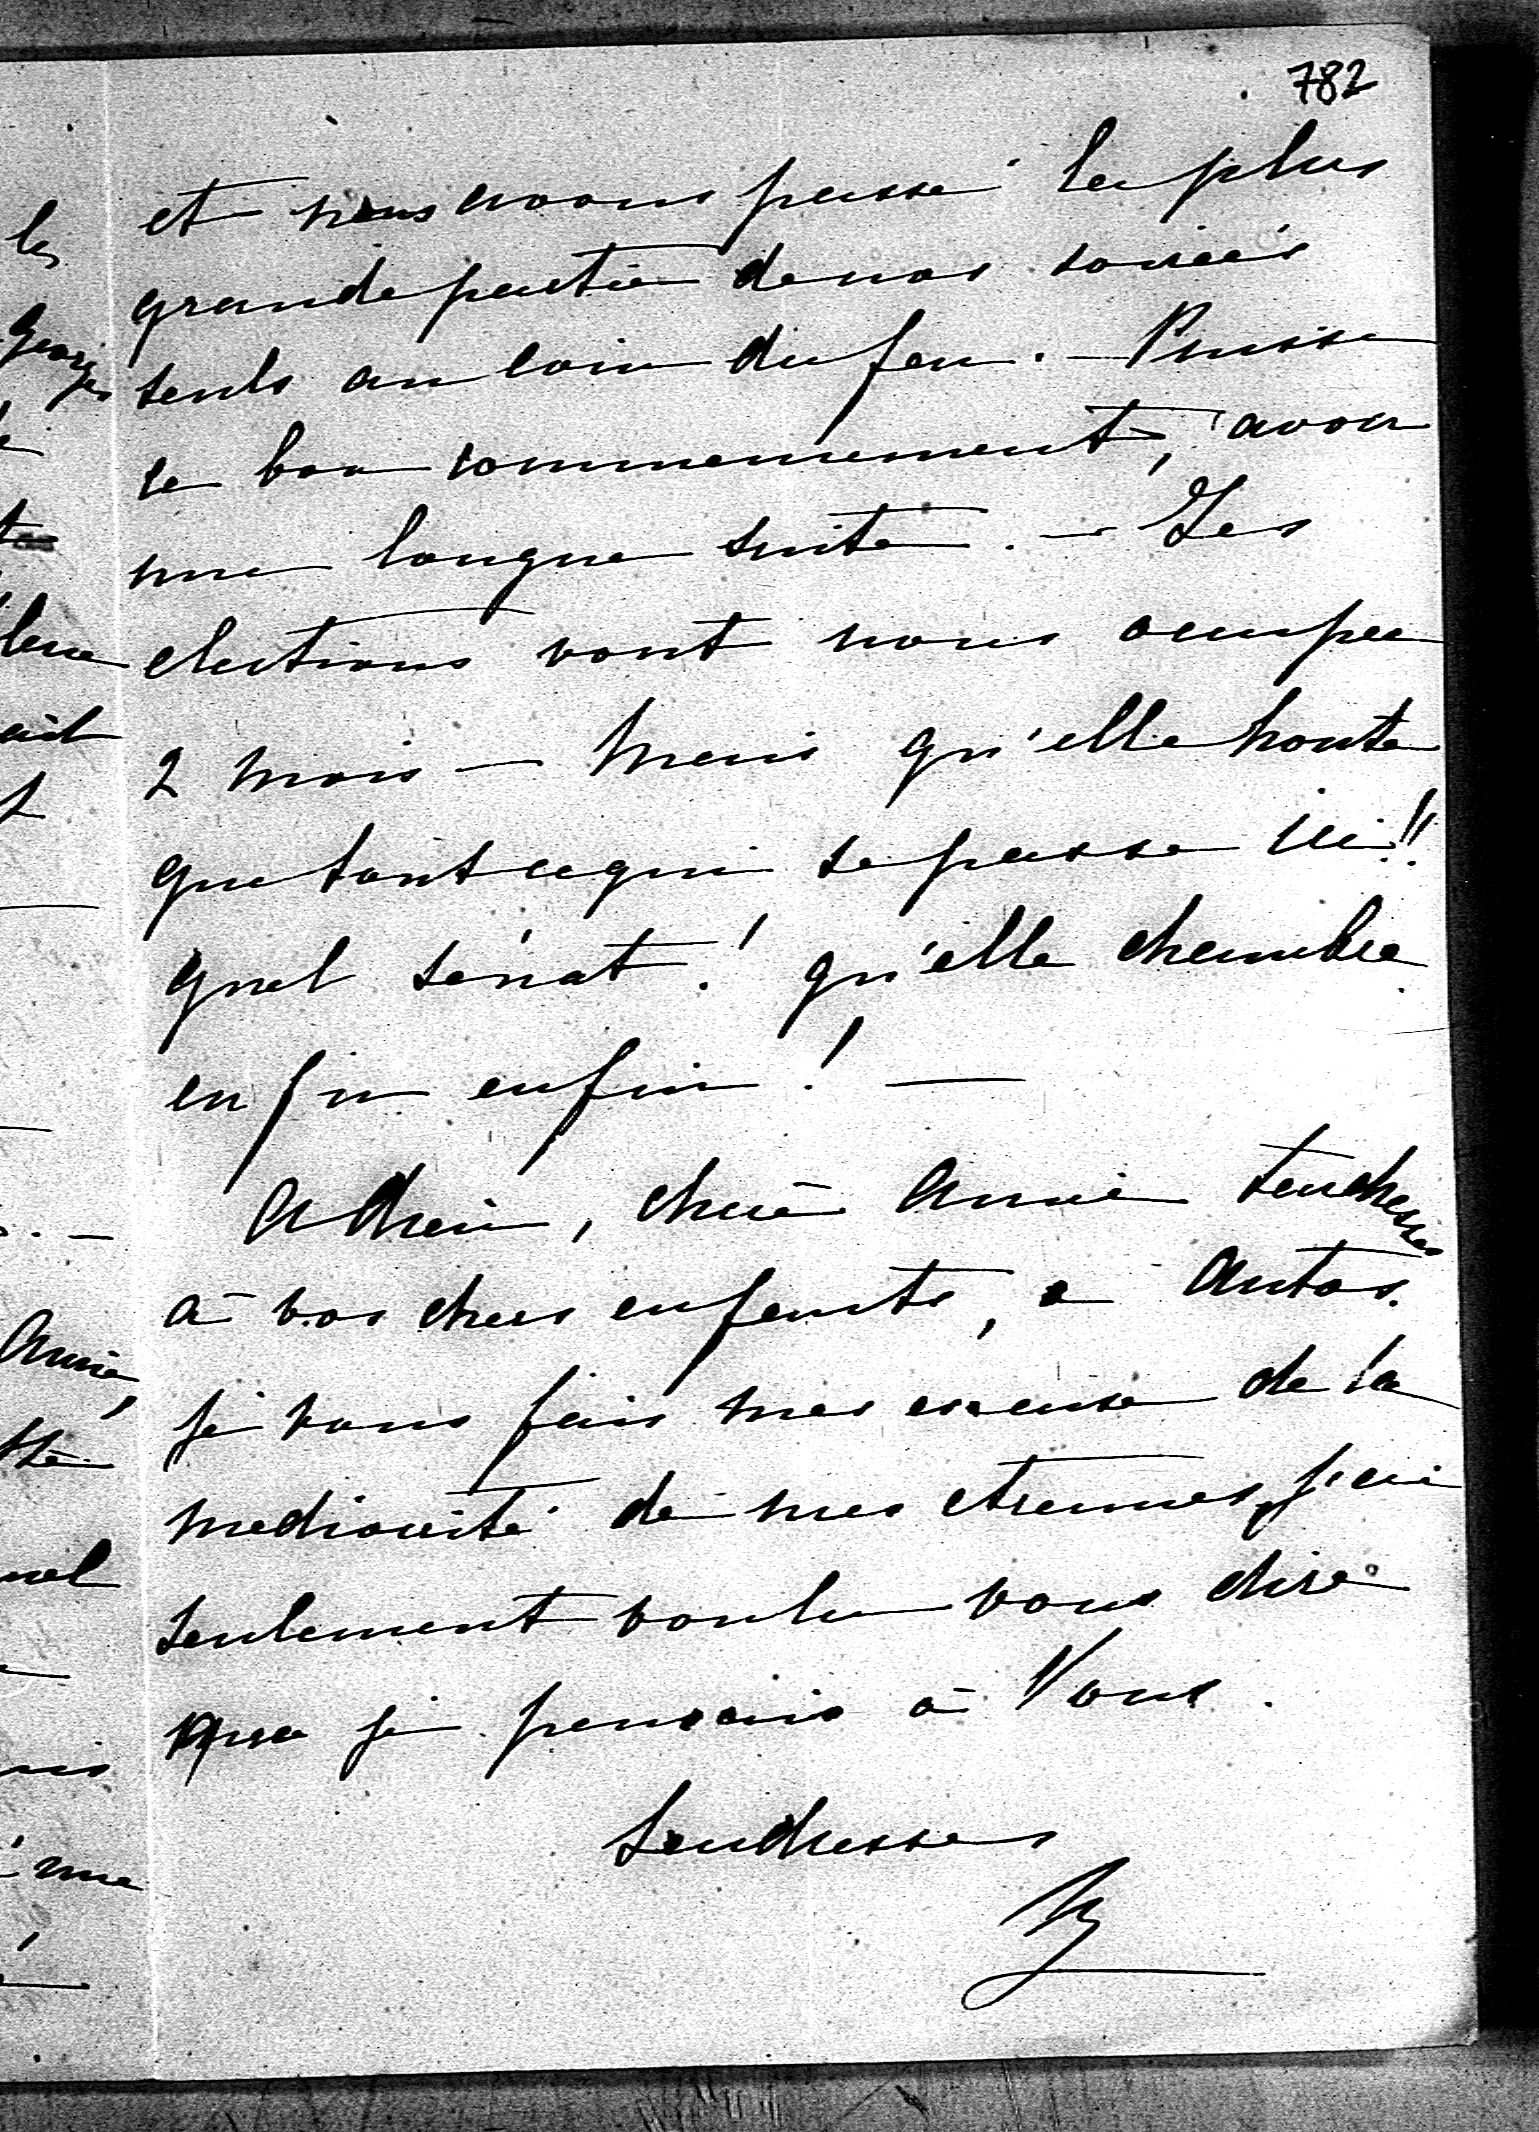 782
et nous avons passé la plus
grande partie de nos soireés
seuls au coin du feu. — Puisse
ce bon commencement, avoir
une longue suite. — Les
elections vont nous occuper
2 mois — Mais qu'elle honte
que tout ce qui se passe ici!!
quel sénat! qu'elle chambre
enfin enfin! —
Adieu, chère Annie tendresses
à vos chers enfants, a
je vous fais mes excuse de la
mediocrité de mes etrennes, j'ai
seulement voulu vous dire
que je pensais à Vous.
Tendresses